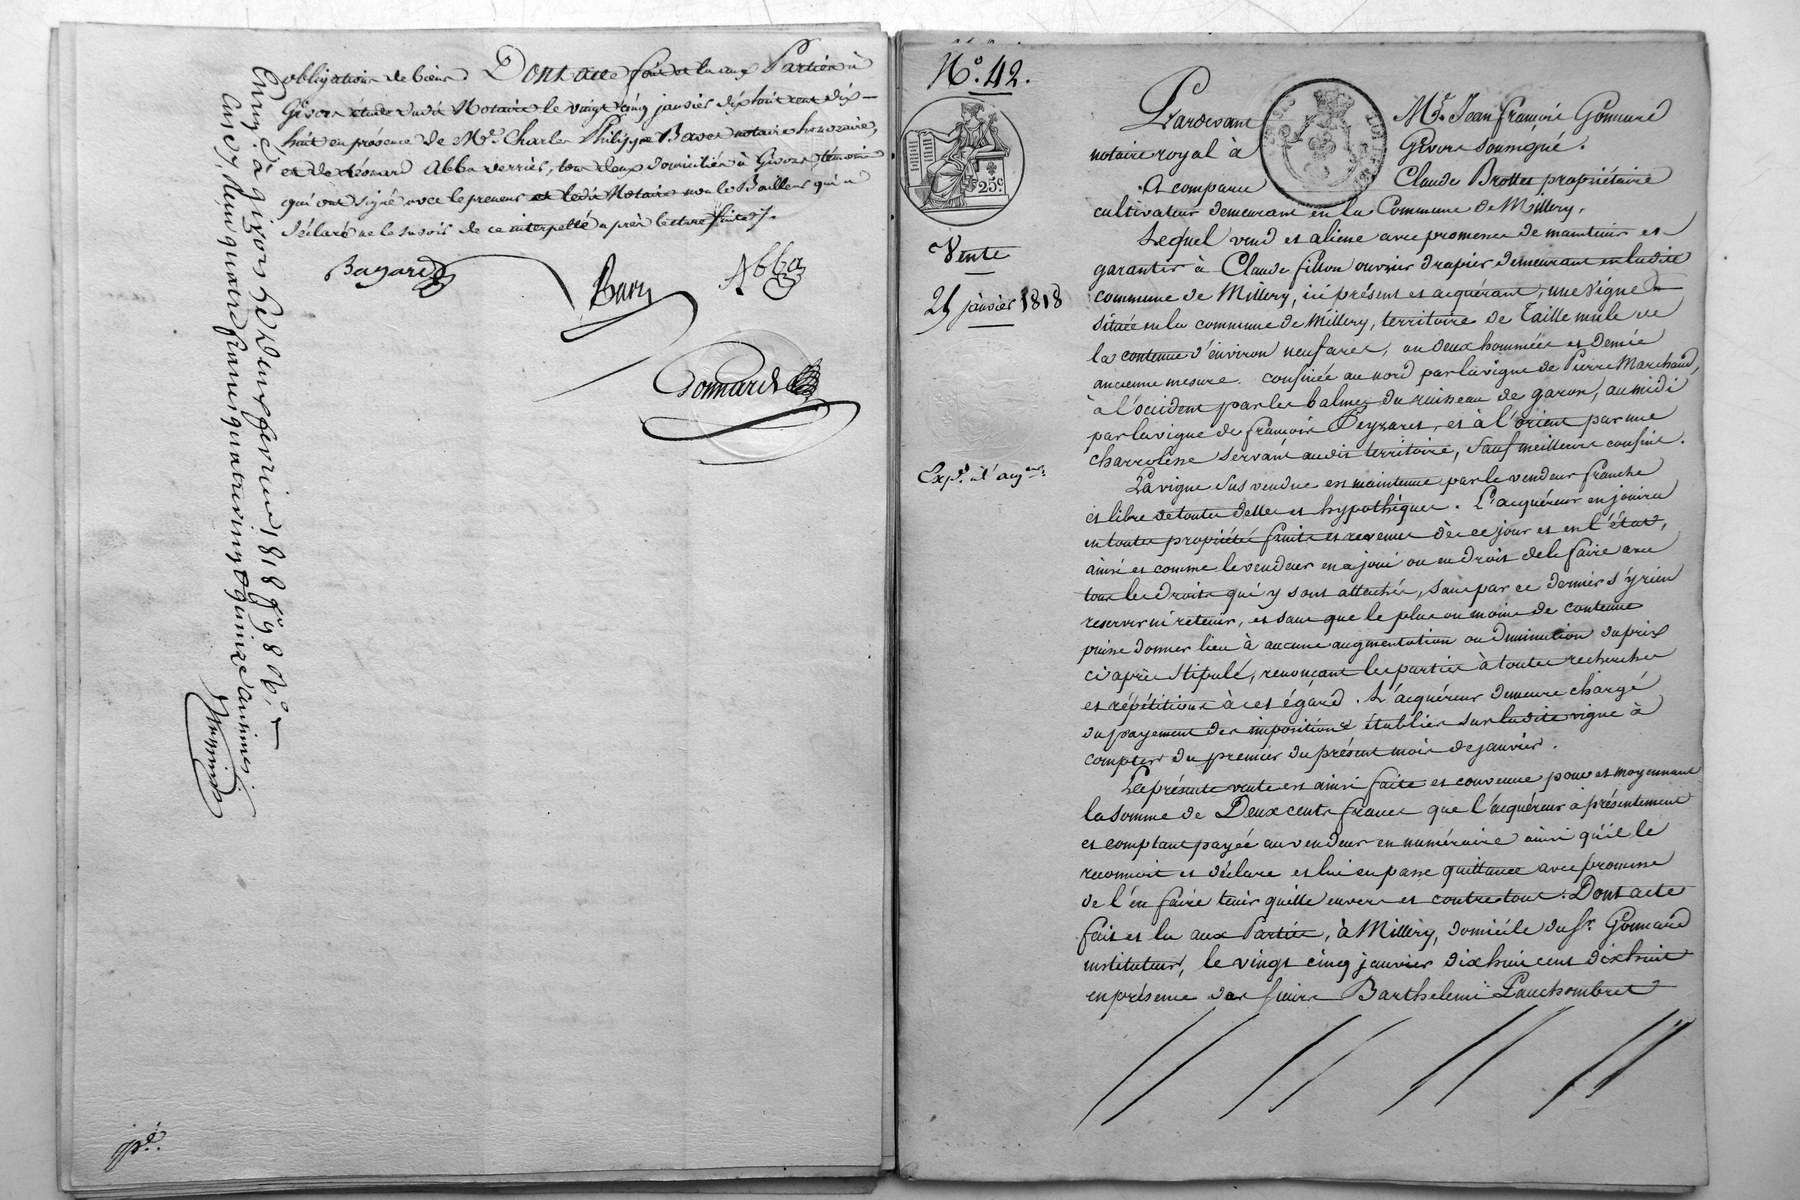 obligations de biens. Dont acte fait et lu aux Parties à
Givors étude dudit Notaire le vingt cinq janvier dix huit cent dix-
huit en présence de Mr. Charles Philippe notaire honoraire,
et de Léonard Abba verrier, tous deux domiciliés à Givors témoins
qui ont signé avec le preneur et ledit Notaire non le Bailleur qui a
déclaré ne le savoir de ce interpellé après lecture faite
Bayard
Abba
Gonnard
Enreg. à givors le deux fevrier 1818
Case 7, reçu quatre francs quatre vingt quinze centimes
N°. 42.
25c
Vente
25 janvier 1818
Exp. à l'acq.
Pardevant Me. Jean françois Gonnard
notaire royal à Givors soussigné.
A comparu Claude Brottet propriétaire
cultivateur demeurant en la Commune de Millery.
Lequel vend et aliene avec promesse de maintenir et
garantir à Claude fillon ouvrier drapier demeurant en ladite
commune de Millery, ici présent et acquérant, une vigne
située en la commune de Millery, territoire de Taille mule de
la contenue d'environ neuf ares, ou deux hommées et demie
ancienne mesure. confinée au nord par la vigne de Pierre Marchand,
à l'occident par les balmes du ruisseau de garon, au midi
par la vigne de françois Peyraret, et à l'orient par une
charroliere servant audit territoire, sauf meilleurs confins.
La vigne sus vendue est maintenue par le vendeur franche
et libre de toutes dettes et hypothéques. L'acquéreur en jouira
en toute propriété fruits et revenus dès ce jour et en l'état,
ainsi et comme le vendeur en a joui ou eu droit de le faire avec
tous les droits qui y sont attachés, sans par ce dernier s'y rien
reserver ni retenir, et sans que le plus ou moins de contenue
puisse donner lieu à aucune augmentation ou diminution du prix
ci après stipulé, renonçant les parties à toutes recherches
et répétitions à cet égard. L'acquéreur demeure chargé
du payement des impositions établies sur ladite vigne à
compter du premier du présent mois de janvier.
La présente vente est ainsi faite et convenue pour et moyennant
la somme de Deux cents francs que l'acquéreur a présentement
et comptant payée au vendeur en numéraire ainsi qu'il le
reconnoit et déclare et lui en passe quittance avec promesse
de l'en faire tenir quitte envers et contre tous. Dont acte
fait et lu aux Parties, à Millery, domicile du Sr. Gonnard
instituteur, le vingt cinq janvier dix huit cent dix huit
en présence des sieurs Barthelemi Pauchombret